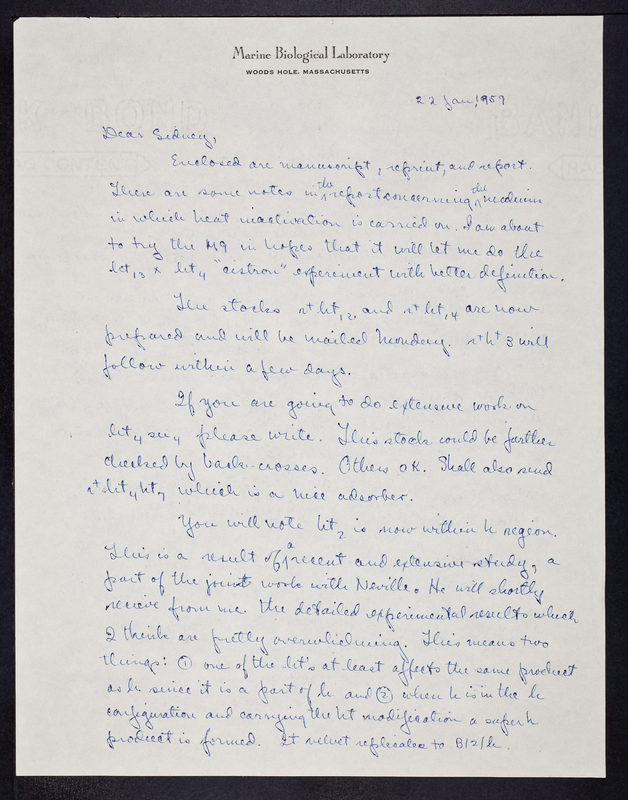 Marine Biological Laboratory
WOODS HOLE, MASSACHUSETTS
22 Jan, 1959
Dear Sidney,
Enclosed are manuscript, reprint, and report.
There are some notes in the report concerning the medium
in which heat inactivation is carried on. I am about
to try the M9 in hopes that it will let me do the
ht,3 x ht4 "cistron" experiment with better definition.
The stocks r+ ht,2, and r+ ht,4 are now
prepared and will be mailed Monday. r+ht 3 will
follow within a few days.
If you are going to do extensive work on
ht4 please write. This stock could be further
checked by back-crosses. Others OK. Shall also send
r+ht4ht7 which is a nice adsorber.
You will note ht2 is now within h region.
This is a result of a recent and extensive study, a
part of the joint work with Neville. He will shortly
receive from me the detailed experimental results which
I think are pretty overwhelming. This means two
things: ① one of the ht's at least affects the same product
as h since it is a part of h and ② when h is in the h
configuration and carrying the ht modification a super h
product is formed. It velvet replicates to B/2/h.